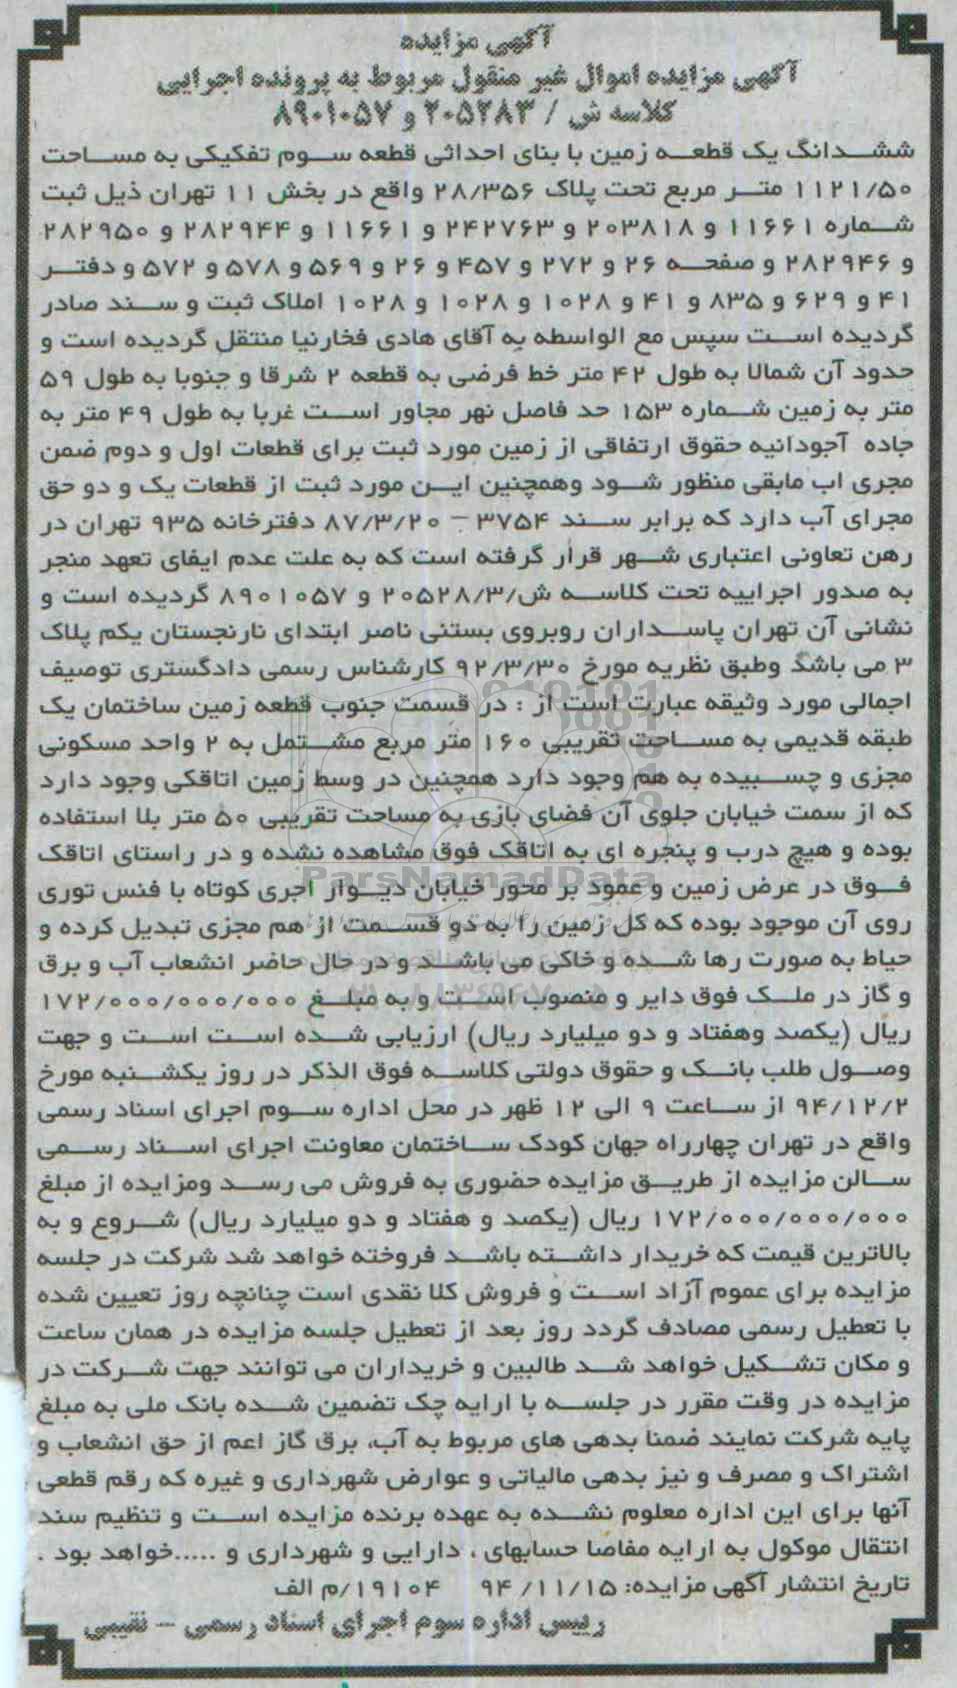 آگهی مزایده
آگهی مزایده اموال غیر منقول مربوط به پرونده اجرایی
کلاسه ش / ۲۰۵۲۸۳ و ۸۹۰۱۰۵۷
ششدانگ یک قطعه زمین با بنای احداثی قطعه سوم تفکیکی به مساحت
۱۱۲۱/۵۰ متر مربع تحت پلاک ۲۸/۳۵۶ واقع در بخش ۱۱ تهران ذیل ثبت
شماره ۱۱۶۶۱ و ۲۰۳۸۱۸ و ۲۴۲۷۶۳ و ۱۱۶۶۱ و ۲۸۲۹۴۴ و ۲۸۲۹۵۰
و ۲۸۲۹۴۶ و صفحه ۲۶ و ۲۷۲ و ۴۵۷ و ۲۶ و ۵۶۹ و ۵۷۸ و ۵۷۲ و دفتر
۴۱ و ۶۲۹ و ۸۳۵ و ۴۱ و ۱۰۲۸ و ۱۰۲۸ و ۱۰۲۸ املاک ثبت و سند صادر
گردیده است سپس مع الواسطه به آقای هادی فخارنیا منتقل گردیده است و
حدود آن شمالا به طول ۴۲ متر خط فرضی به قطعه ۲ شرقا و جنوبا به طول ۵۹
متر به زمین شماره ۱۵۳ حد فاصل نهر مجاور است غربا به طول ۴۹ متر به
جاده آجودانیه حقوق ارتفاقی از زمین مورد ثبت برای قطعات اول و دوم ضمن
مجری اب مابقی منظور شود وهمچنین این مورد ثبت از قطعات یک و دو حق
مجرای آب دارد که برابر سند ۳۷۵۴ – ۸۷/۳/۲۰ دفترخانه ۹۳۵ تهران در
رهن تعاونی اعتباری شهر قرار گرفته است که به علت عدم ایفای تعهد منجر
به صدور اجراییه تحت کلاسه ش/۲۰۵۲۸/۳ و ۸۹۰۱۰۵۷ گردیده است و
نشانی آن تهران پاسداران روبروی بستنی ناصر ابتدای نارنجستان یکم پلاک
۳ می باشد وطبق نظریه مورخ ۹۲/۳/۳۰ کارشناس رسمی دادگستری توصیف
اجمالی مورد وثیقه عبارت است از : در قسمت جنوب قطعه زمین ساختمان یک
طبقه قدیمی به مساحت تقریبی ۱۶۰ متر مربع مشتمل به ۲ واحد مسکونی
مجزی و چسبیده به هم وجود دارد همچنین در وسط زمین اتاقکی وجود دارد
که از سمت خیابان جلوی آن فضای بازی به مساحت تقریبی ۵۰ متر بلا استفاده
بوده و هیچ درب و پنجره ای به اتاقک فوق مشاهده نشده و در راستای اتاقک
ParsNamadData
فوق در عرض زمین و عمود بر محور خیابان دیوار اجری کوتاه با فنس توری
روی آن موجود بوده که کل زمین را به دو قسمت از هم مجزی تبدیل کرده و
حیاط به صورت رها شده و خاکی می باشد و در حال حاضر انشعاب آب و برق
و گاز در ملک فوق دایر و منصوب است و به مبلغ ۱۷۲/۰۰۰/۰۰۰/۰۰۰
ریال (یکصد وهفتاد و دو میلیارد ریال) ارزیابی شده است است و جهت
وصول طلب بانک و حقوق دولتی کلاسه فوق الذکر در روز یکشنبه مورخ
۹۴/۱۲/۲ از ساعت ۹ الی ۱۲ ظهر در محل اداره سوم اجرای اسناد رسمی
واقع در تهران چهارراه جهان کودک ساختمان معاونت اجرای اسناد رسمی
سالن مزایده از طریق مزایده حضوری به فروش می رسد ومزایده از مبلغ
۱۷۲/۰۰۰/۰۰۰/۰۰۰ ریال (یکصد و هفتاد و دو میلیارد ریال) شروع و به
بالاترین قیمت که خریدار داشته باشد فروخته خواهد شد شرکت در جلسه
مزایده برای عموم آزاد است و فروش کلا نقدی است چنانچه روز تعیین شده
با تعطیل رسمی مصادف گردد روز بعد از تعطیل جلسه مزایده در همان ساعت
و مکان تشکیل خواهد شد طالبین و خریداران می توانند جهت شرکت در
مزایده در وقت مقرر در جلسه با ارایه چک تضمین شده بانک ملی به مبلغ
پایه شرکت نمایند ضمنا بدهی های مربوط به آب، برق گاز اعم از حق انشعاب و
اشتراک و مصرف و نیز بدهی مالیاتی و عوارض شهرداری و غیره که رقم قطعی
آنها برای این اداره معلوم نشده به عهده برنده مزایده است و تنظیم سند
انتقال موکول به ارایه مفاصا حسابهای ، دارایی و شهرداری و .....خواهد بود .
تاریخ انتشار آگهی مزایده: ۹۴/۱۱/۱۵ ۱۹۱۰۴/م الف
رییس اداره سوم اجرای اسناد رسمی – نقیبی